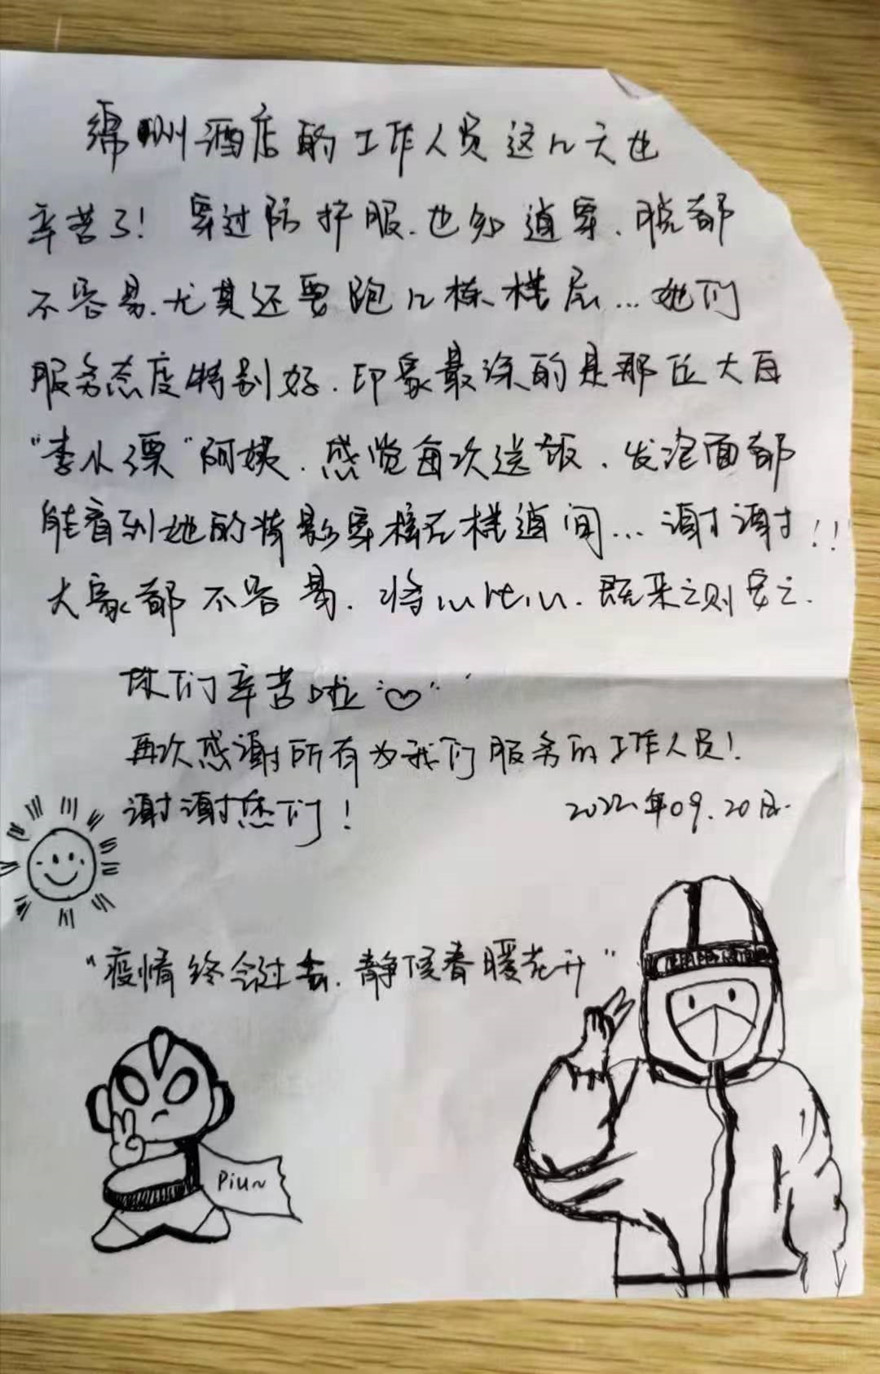 绵州酒店的工作人员这几天也
辛苦了! 穿过防护服.也知道穿、脱都
不容易.尤其还要跑几栋楼层...她们
服务态度特别好.印象最深的是那位大白
“李小漂”阿姨.感觉每次送饭、发泡面都
能看到她的背影穿梭在楼道间...谢谢!!
大家都不容易.将心比心.既来之则安之.
你们辛苦啦♡
再次感谢所有为我们服务的工作人员!
谢谢您们!
2022年09.20日.
“疫情终会过去.静候春暖花开”
Piu~